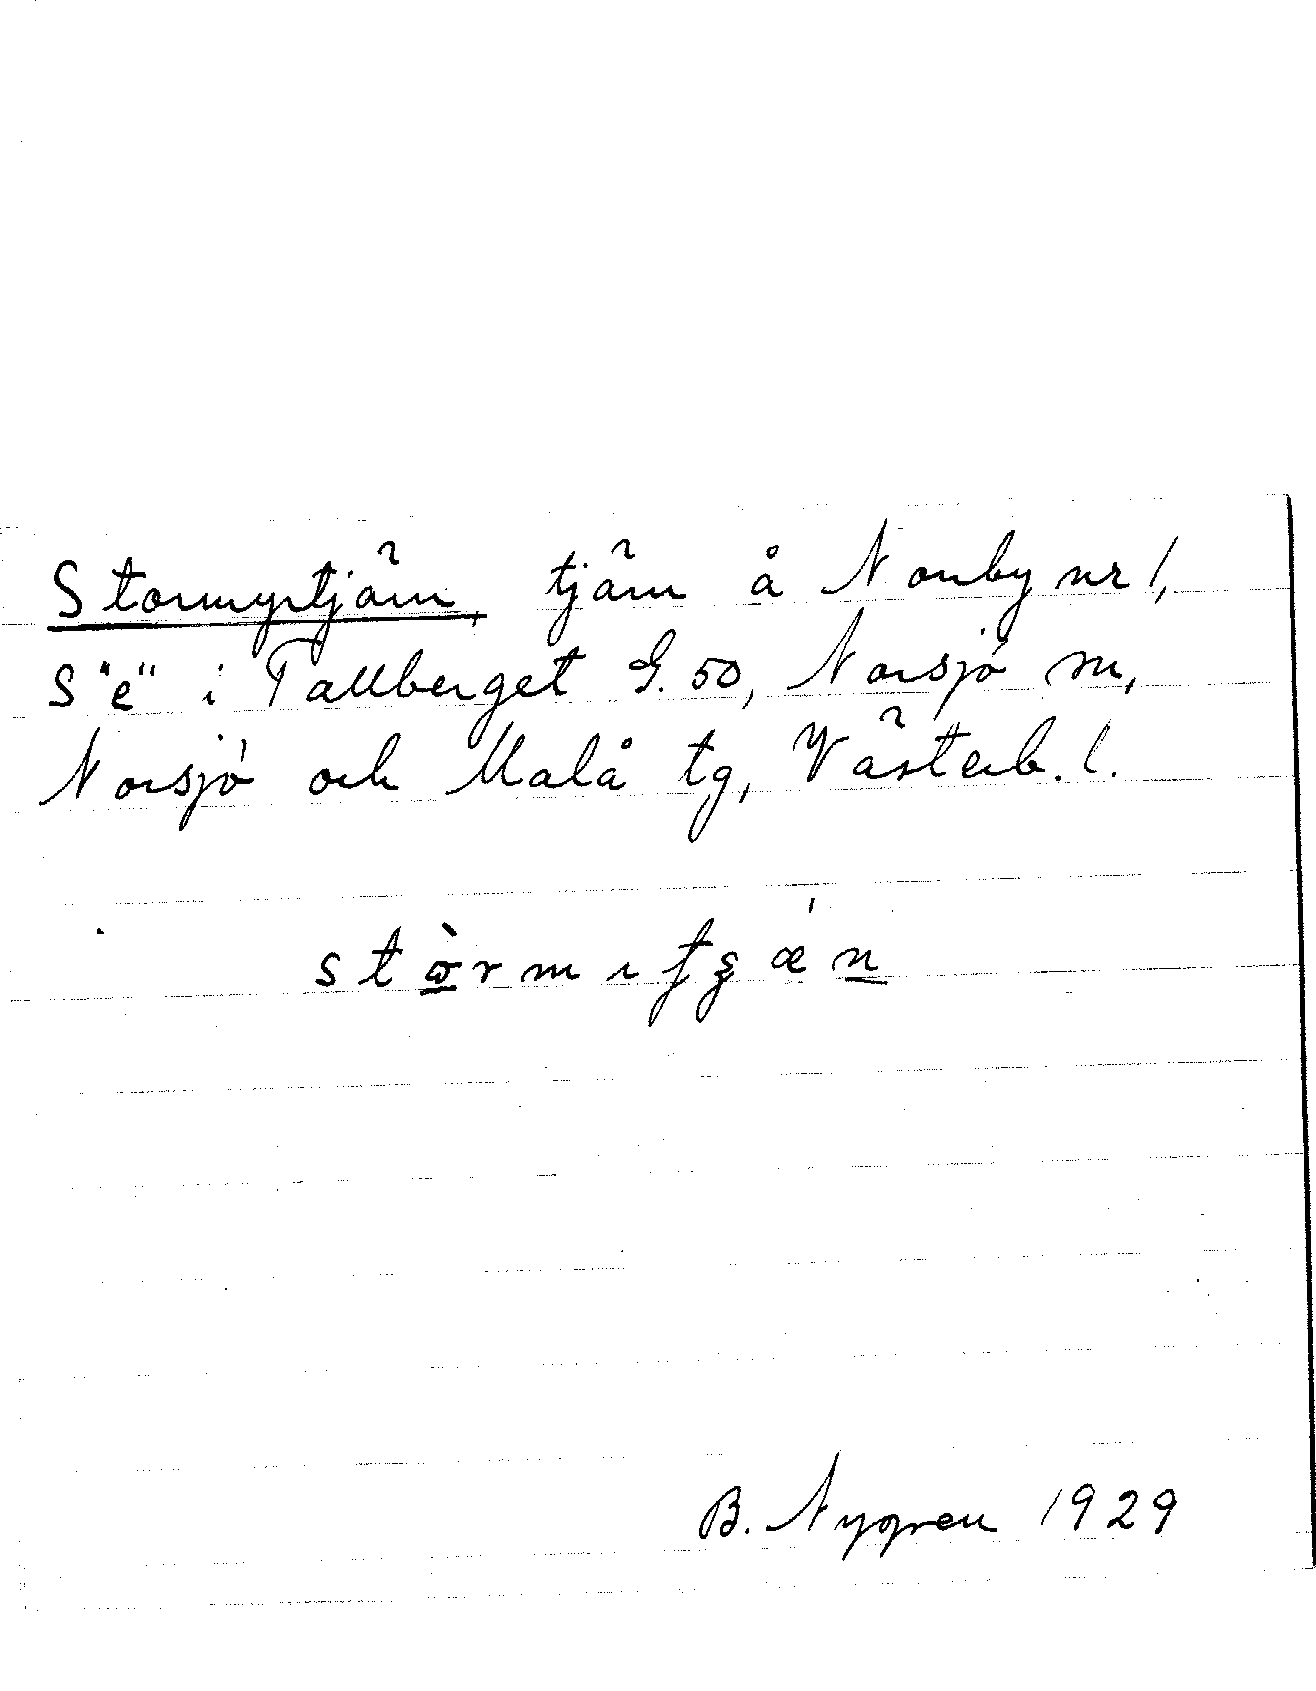 Stormyrtjärn, tjärn å Norrby nr 1,
S "e" i Tallberget G. 50, Norsjö sn,
Norsjö och Malå tg, Västerb. l.
B. Nygren 1929